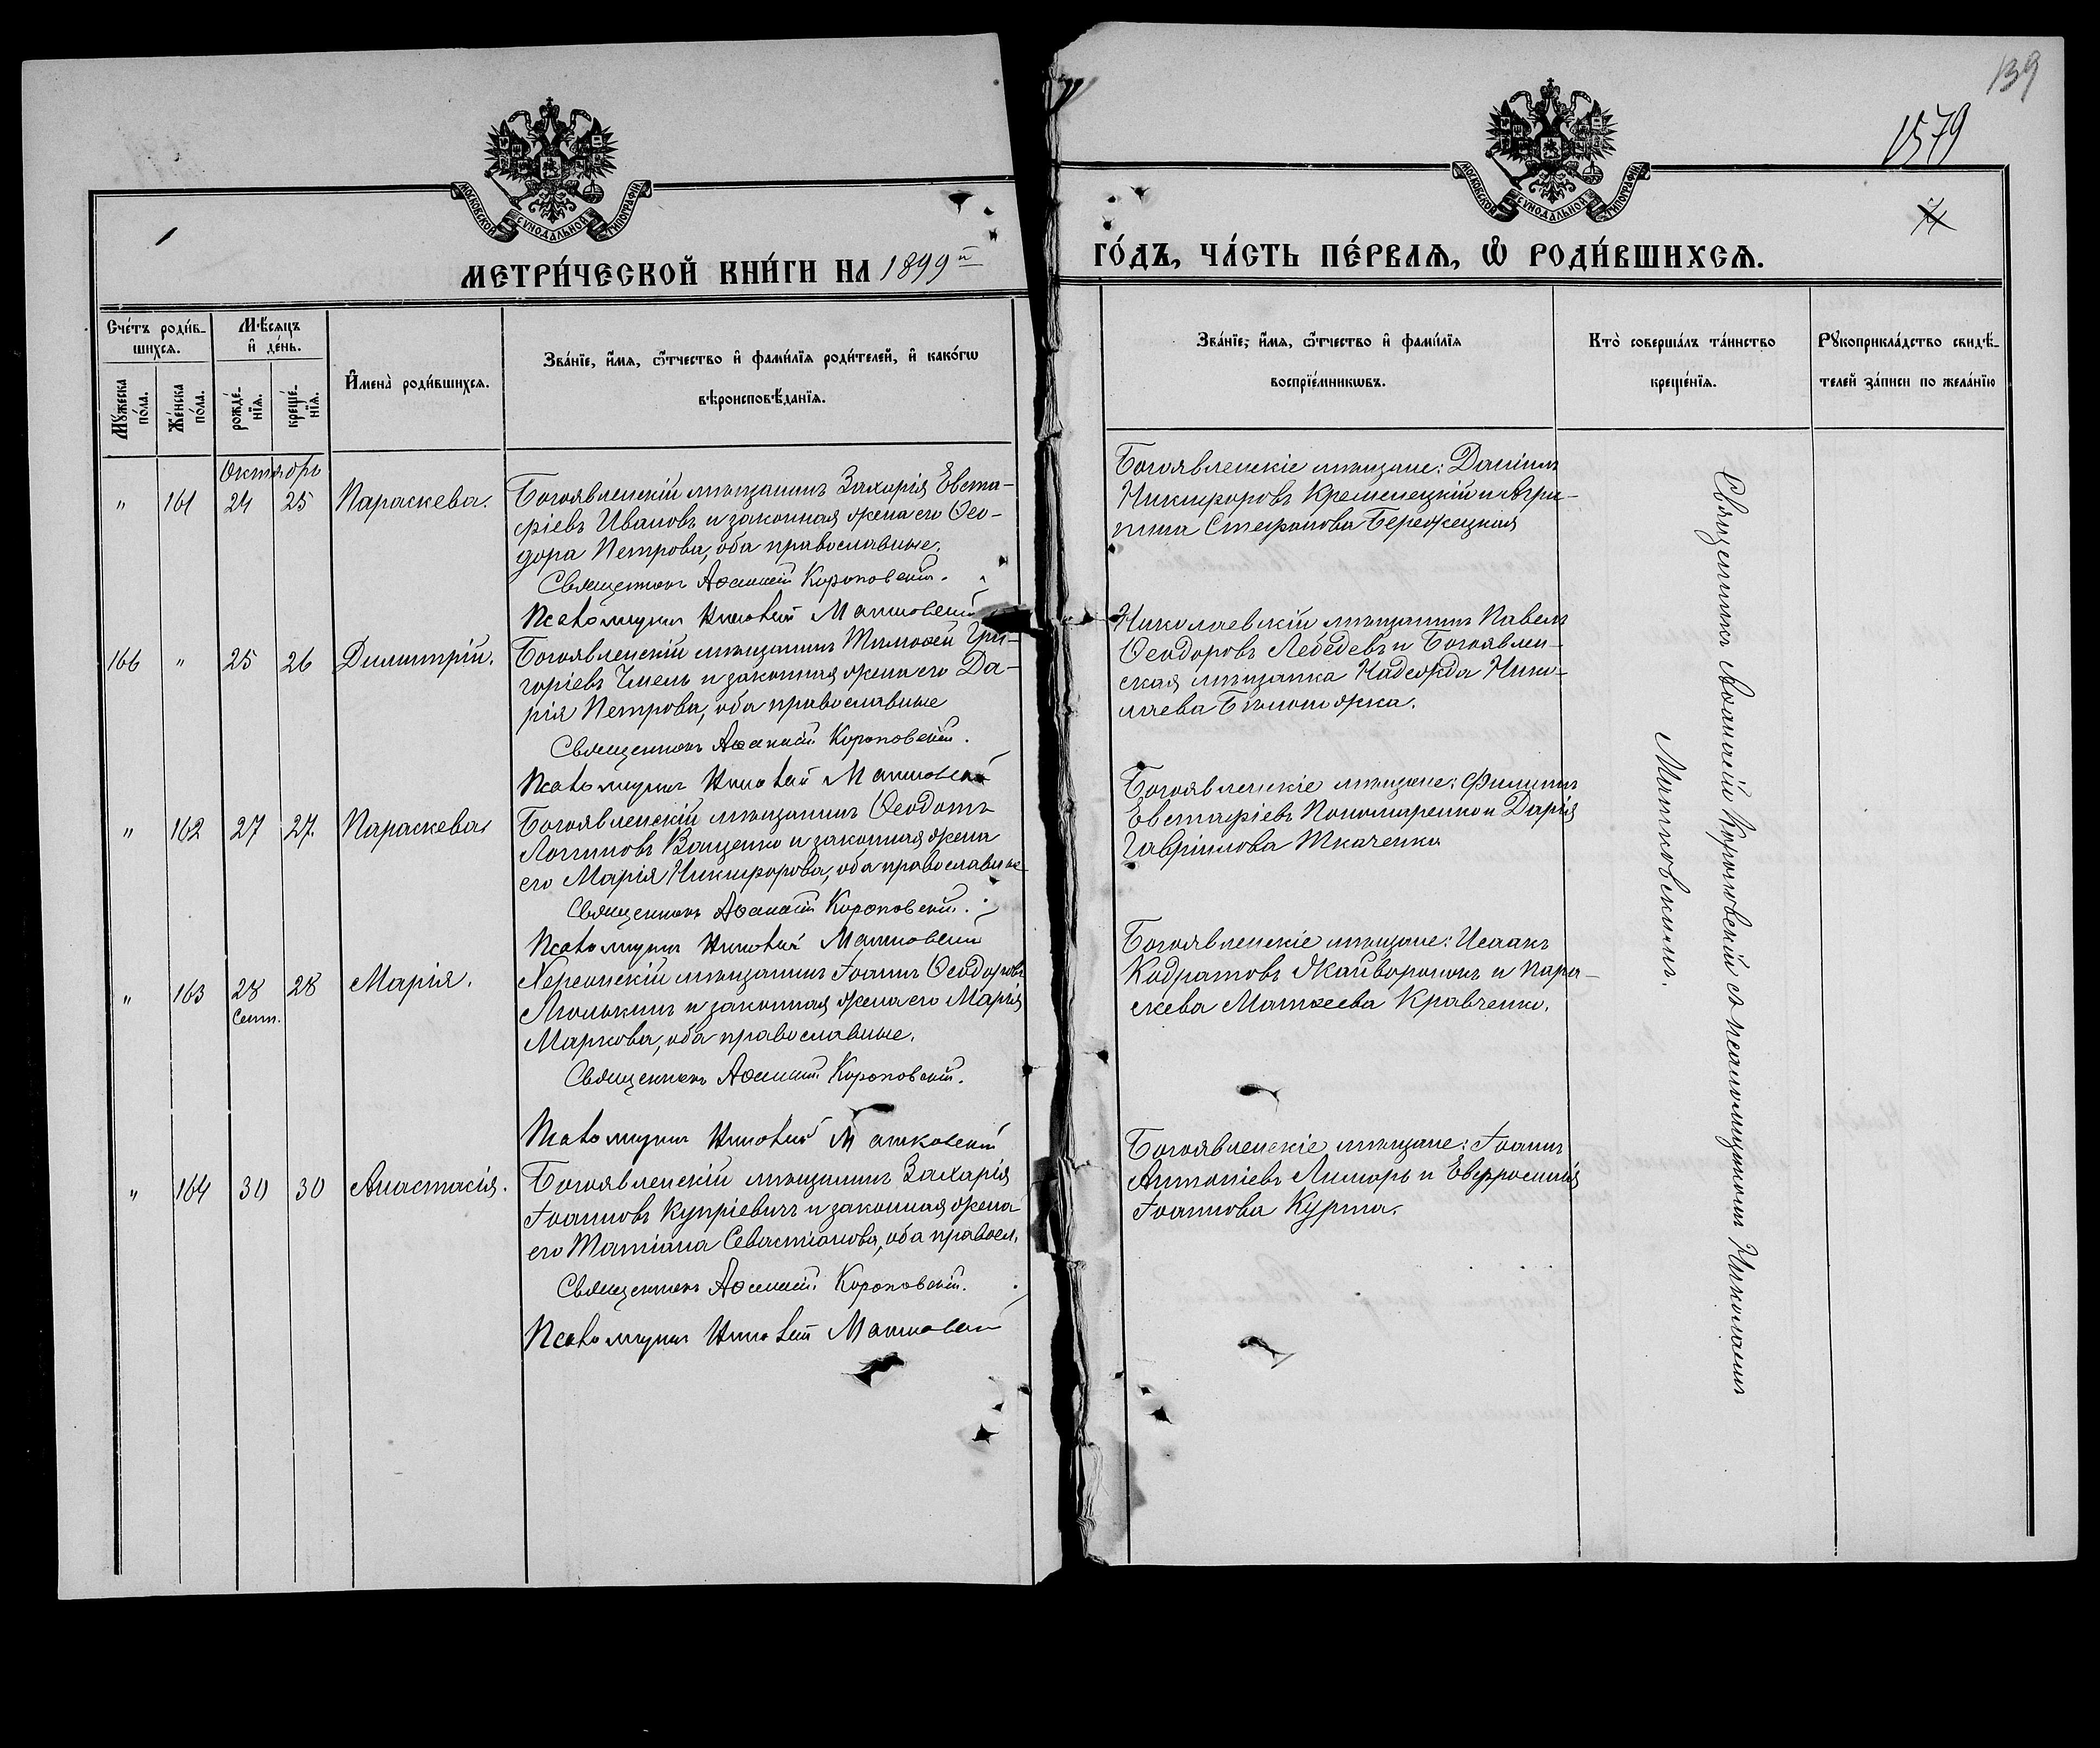 139
1579
МОСКОВСКОЙ СѴНОДАЛЬНОЙ ТИПОГРАФІИ
МОСКОВСКОЙ СѴНОДАЛЬНОЙ ТИПОГРАФІИ
МЕТРИ́ЧЕСКОЙ КНИ́ГИ НА 1899й
ГО́ДЪ, ЧА́СТЬ ПЕ́РВАѦ, Ѽ РОДИ́ВШИХСѦ.
Сче́тъ роди́в-
шихсѧ.
Мꙋ́жеска
по́ла.
Же́нска
по́ла.
Мѣ́сѧцъ
и҆ де́нь.
рожде́-
нїѧ.
креще́-
нїѧ.
И҆мена̀ роди́вшихсѧ.
Зва́нїе, и҆́мѧ, ѻ҆́тчество и҆ фами́лїѧ роди́телей, и҆ како́гѡ
вѣроисповѣ́данїѧ.
Зва́нїе, и҆́мѧ, ѻ҆́тчество и҆ фами́лїѧ
воспрїе́мникѡвъ.
Кто̀ соверша́лъ та́инство
креще́нїѧ.
Рꙋкоприкла́дство свидѣ́-
телей за́писи по жела́нїю
Октябрь
" 161 24 25 Параскева.
Богоявленскій мѣщанинъ Захарія Евста-
фіевъ Ивановъ и законная жена его Ѳео-
дора Петрова, оба православные.
Священникъ Аѳанасій Короповскій.
Псаломщикъ Николай Матковскій
Богоявленскіе мѣщане: Даніилъ
Никифоровъ Кременецкій и Агри-
пина Стефанова Бережецкая
166 " 25 26 Димитрій.
Богоявленскій мѣщанинъ Тимоѳей Гри-
горіевъ Чмель и законная жена его Да-
рія Петрова, оба православные
Священникъ Аѳанасій Короповскій.
Псаломщикъ Николай Матковскій
Николаевскій мѣщанинъ Павелъ
Ѳеодоровъ Лебедевъ и Богоявлен-
ская мѣщанка Надежда Нико-
лаева Бѣлоножка.
" 162 27 27. Параскева
Богоявленскій мѣщанинъ Ѳеодотъ
Логиновъ Ващенко и законная жена
его Марія Никифорова, оба православные
Священникъ Аѳанасій Короповскій.
Псаломщикъ Николай Матковскій
Богоявленскіе мѣщане: Филиппъ
Евстафіевъ Пономаренко и Дарія
Гавріилова Ткаченко
" 163 28 28 Марія.
Сент.
Херсонскій мѣщанинъ Іоаннъ Ѳеодоровъ
Люлькинъ и законная жена его Марія
Маркова, оба православные.
Священникъ Аѳанасій Короповскій.
Псаломщикъ Николай Матковскій
Богоявленскіе мѣщане: Исаакъ
Кодратовъ Жайворонокъ и Пара-
скева Матѳеева Кравченко.
" 164 30 30 Анастасія.
Богоявленскій мѣщанинъ Захарія
Іоанновъ Купріевичъ и законная жена
его Татіана Севастіанова, оба правосл.
Священникъ Аѳанасій Короповскій.
Псаломщикъ Николай Матковскій
Богоявленскіе мѣщане: Іоаннъ
Антоніевъ Лимарь и Евфросинія
Іоаннова Курта.
Священникъ Аѳанасій Короповскій съ псаломщикомъ Николаемъ
Матковскимъ.